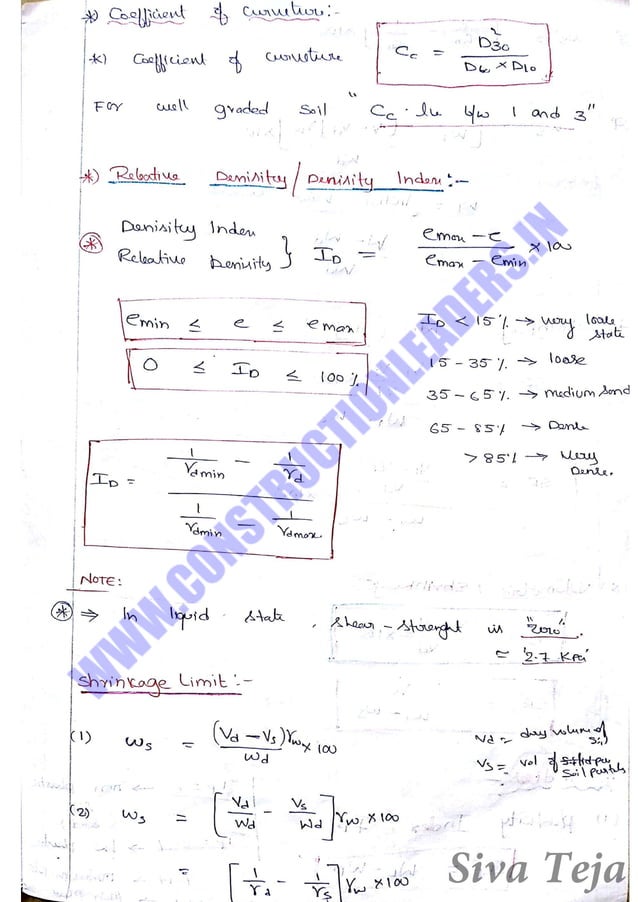 *) Coefficient of Curvature:-
*) Coefficient of Curvature Cc = D²30 / D60 × D10
For well graded soil "Cc lie b/w 1 and 3"
*) Relative Denisity/Denisity Index:-
Denisity Index
Relative Denisity } ID = emax - e / emax - emin × 100
emin ≤ e ≤ emax
0 ≤ ID ≤ 100%
ID < 15% → very loose state
15 - 35% → loose
35 - 65% → medium sand
65 - 85% → Dense
> 85% → Very Dense.
ID = (1/γdmin - 1/γd) / (1/γdmin - 1/γdmax)
NOTE:
⇒ In liquid state, Shear-strenght is "Zero".
≈ '2.7 KPa'
Shrinkage Limit:-
(1) ws = (Vd - Vs)γw / Wd × 100
Vd = dry volume of soil
Vs = vol of Soil particls
(2) ws = [Vd/Wd - Vs/Wd] γw × 100
= [1/γd - 1/γs] γw × 100
WWW.CONSTRUCTIONLEADERS.IN
Siva Teja